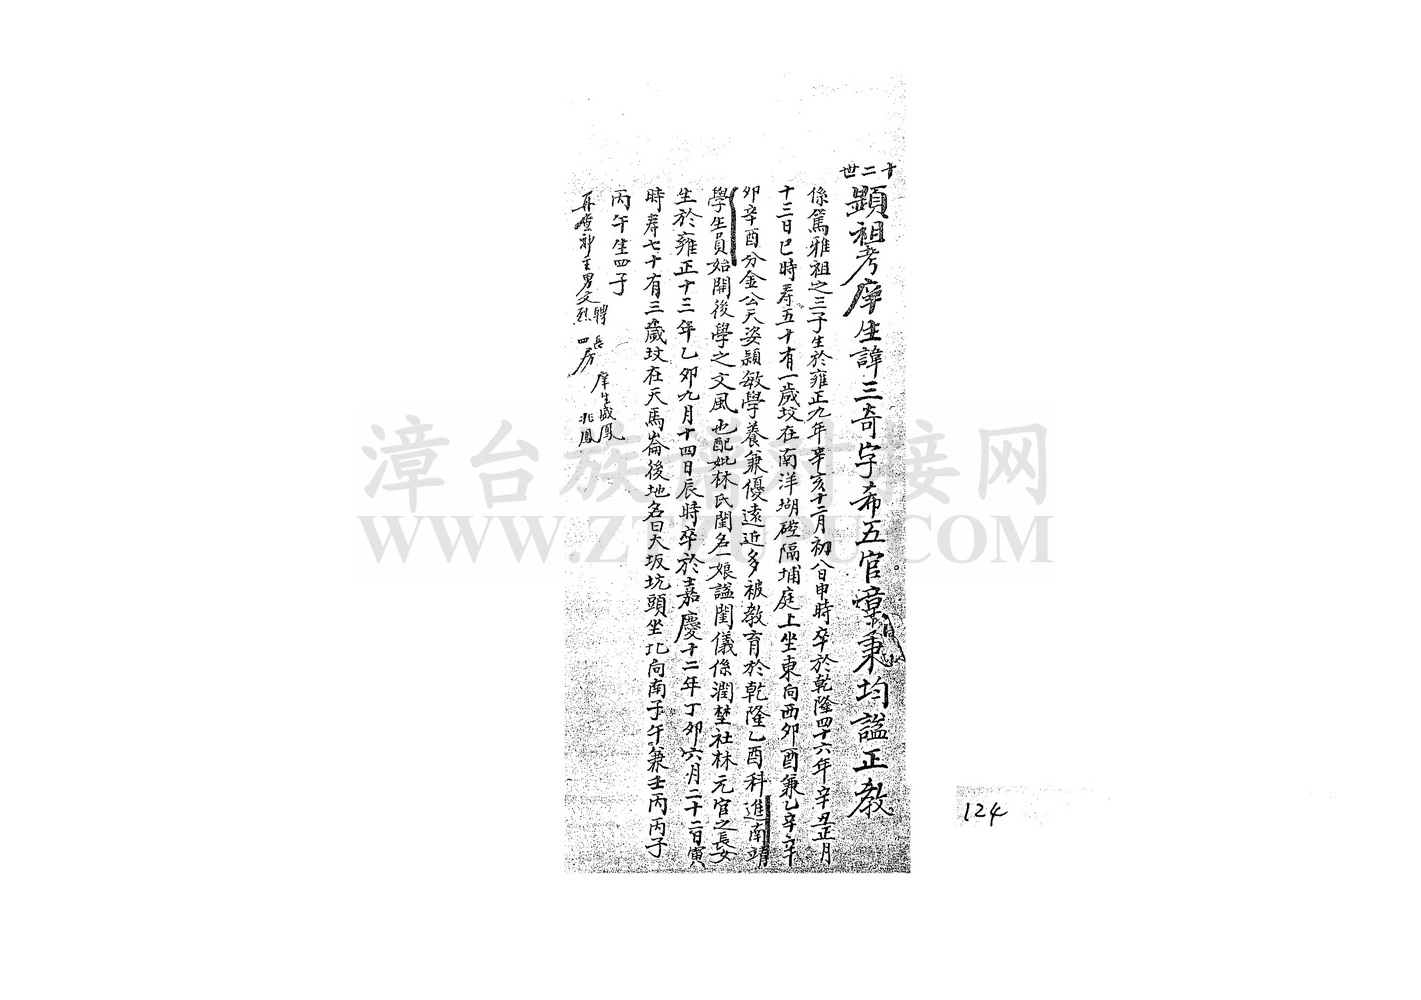 十二世
顕祖考庠生諱三奇字希五官章秉均諡正教
係篤雅祖之三子生於雍正九年辛亥十二月初八日申時卒於乾隆四十六年辛丑正月
十三日巳時寿五十有一歲坟在南洋湖硿隔埔庭上坐東向西卯酉兼乙辛辛
卯辛酉分金公天姿頴敏學養兼優遠近多被教育於乾隆乙酉科進南靖
學生員始開後學之文風也配妣林氏閨名一娘諡閨儀係潤埜社林元官之長女
生於雍正十三年乙卯九月十四日辰時卒於嘉慶十二年丁卯六月二十二日寅
時寿七十有三歲坟在天馬崙後地名曰大坂坑頭坐北向南子午兼壬丙丙子
丙午生四子
男文
聘 長
烈 四房
庠生 鳳
兆鳳
漳台族谱对接网
WWW.ZTZUPU.COM
124